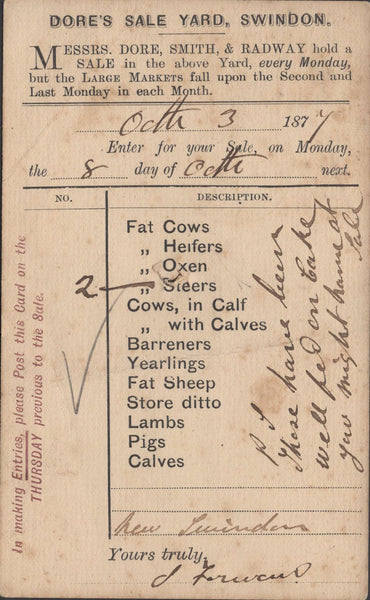 DORE'S SALE YARD, SWINDON.
MESSRS. DORE, SMITH, & RADWAY hold a
SALE in the above Yard, every Monday,
but the LARGE MARKETS fall upon the Second and
Last Monday in each Month.
Octr 3 1877
Enter for your Sale, on Monday,
the 8 day of Octr next.
NO. DESCRIPTION.
Fat Cows
„ Heifers
„ Oxen
2 — „ Steers
Cows, in Calf
„ with Calves
Barreners
Yearlings
Fat Sheep
Store ditto
Lambs
Pigs
Calves
New Swindon
Yours truly,
In making Entries, please Post this Card on the
THURSDAY previous to the Sale.
These have been
well fed on Cake
you might name at
Sale